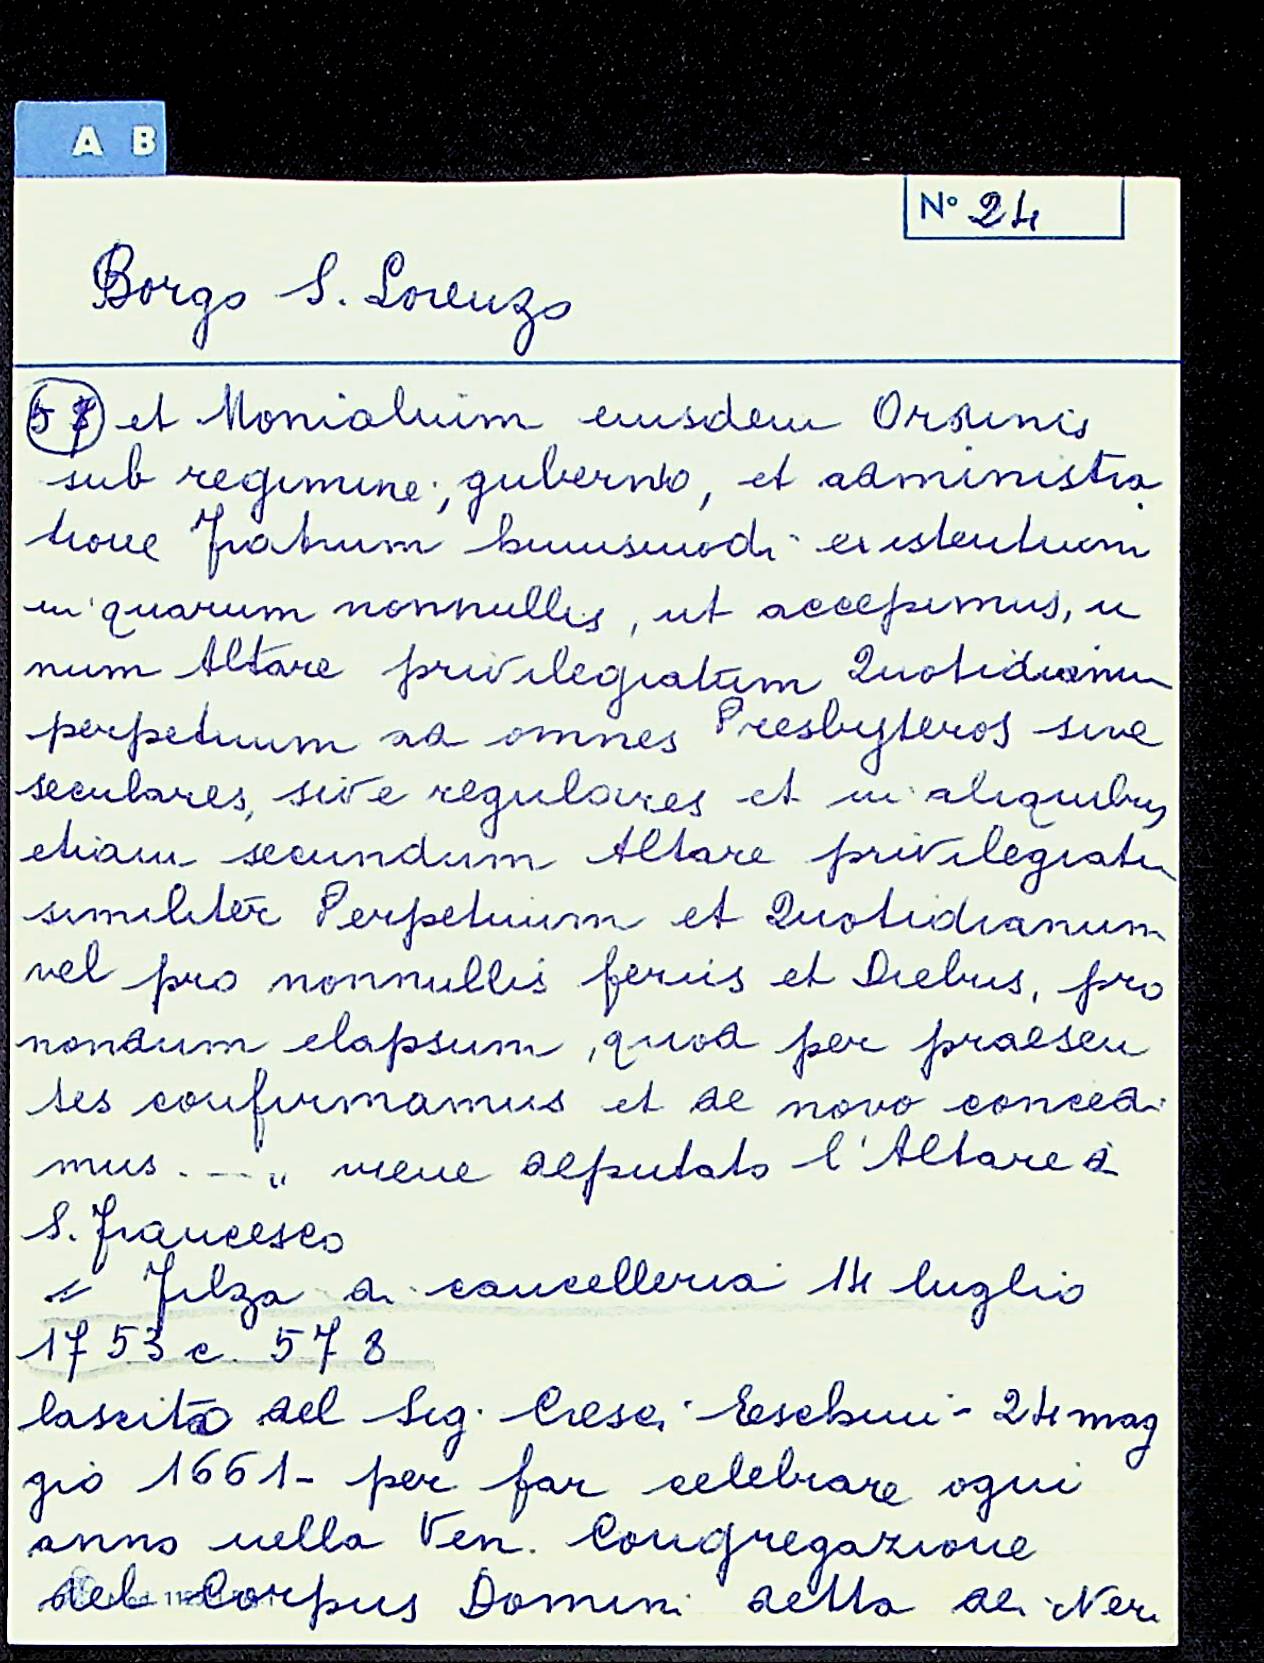 A B
N° 24
Borgo S. Lorenzo
57 et Monialium eiusdem Ordinis
sub regimine, guberno, et administra
tione Fratrum huiusmodi existentium
in quarum nonnullis, ut accepimus, u
num Altare privilegiatum Quotidianum
perpetuum ad omnes Presbyteros sive
seculares, sive regulares et in aliquibus
etiam secundum Altare privilegiatu
similiter Perpetuum et Quotidianum
vel pro nonnullis feriis et Diebus, pro
nondum elapsum, quod per praesen
tes confirmamus et de novo concedi
mus. - - " viene deputato l'Altare di
S. Francesco
= Filza di cancelleria 14 luglio
1753 c. 578
lascito del Sig. Cresci - 24 mag
gio 1661 - per far celebrare ogni
anno nella Ven. Congregazione
del Corpus Domini detta dei Neri